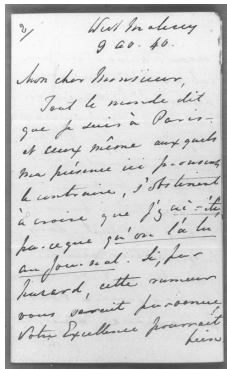 2/
West Molesey
9 ao. 40.
Mon cher Monsieur,
Tout le monde dit
que je suis à Paris -
et ceux même aux quels
ma présence ici prouve
le contraire, s'obstinent
à croire que j'y ai été,
parceque qu'on l'a lu
au Journal. Si, par
hazard, cette rumeur
vous serait parvenue,
Votre Excellence pourrait
bien